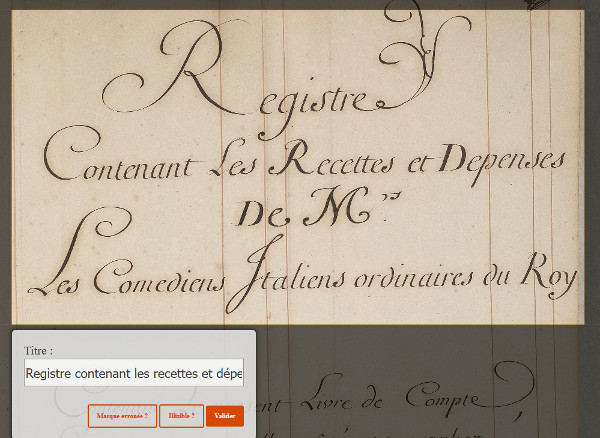 Registre
Contenant Les Recettes et Depenses
De M.rs
Les Comediens Italiens ordinaires du Roy
Titre :
Registre contenant les recettes et dépe
Marque erronée ?
Illisible ?
Valider
ent Livre de Compte,